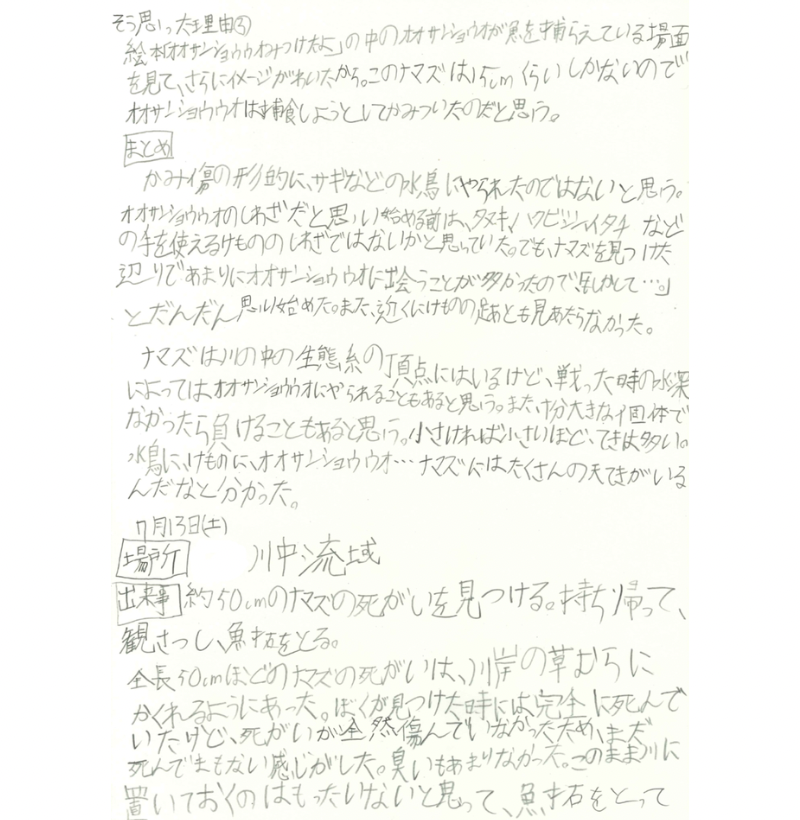 そう思った理由③
絵本「オオサンショウウオみつけたよ」の中のオオサンショウオが魚を捕らえている場面
を見て、さらにイメージがわいたから。このナマズは15cmくらいしかないので
オオサンショウウオは捕食しようとしてかみついたのだと思う。
まとめ
かみ傷の形的に、サギなどの水鳥にやられたのではないと思う。
オオサンショウウオのしわざだと思い始める前は、タヌキ、ハクビシン、イタチなど
の手を使えるけもののしわざではないかと思っていた。でも、ナマズを見つけた
辺りであまりにオオサンショウウオに出会うことが多かったので「もしかして…。」
とだんだん思い始めた。また、近くにけものの足あとも見あたらなかった。
ナマズは川の中の生態系の頂点にはいるけど、戦った時の水深
によってはオオサンショウウオにやられることもあると思う。また、十分大きな個体で
なかったら負けることもあると思う。小さければ小さいほど、てきは多い。
水鳥に、けものに、オオサンショウウオ…ナマズにはたくさんの天てきがいる
んだなと分かった。
7月13日(土)
場所 川中流域
出来事 約50cmのナマズの死がいを見つける。持ち帰って、
観さつし、魚才石をとる。
全長50cmほどのナマズの死がいは、川岸の草むらに
かくれるようにあった。ぼくが見つけた時には完全に死んで
いたけど、死がいが全然傷んでいなかったため、まだ
死んでまもない感じがした。臭いもあまりなかった。このまま川に
置いておくのはもったいないと思って、魚才石をとって